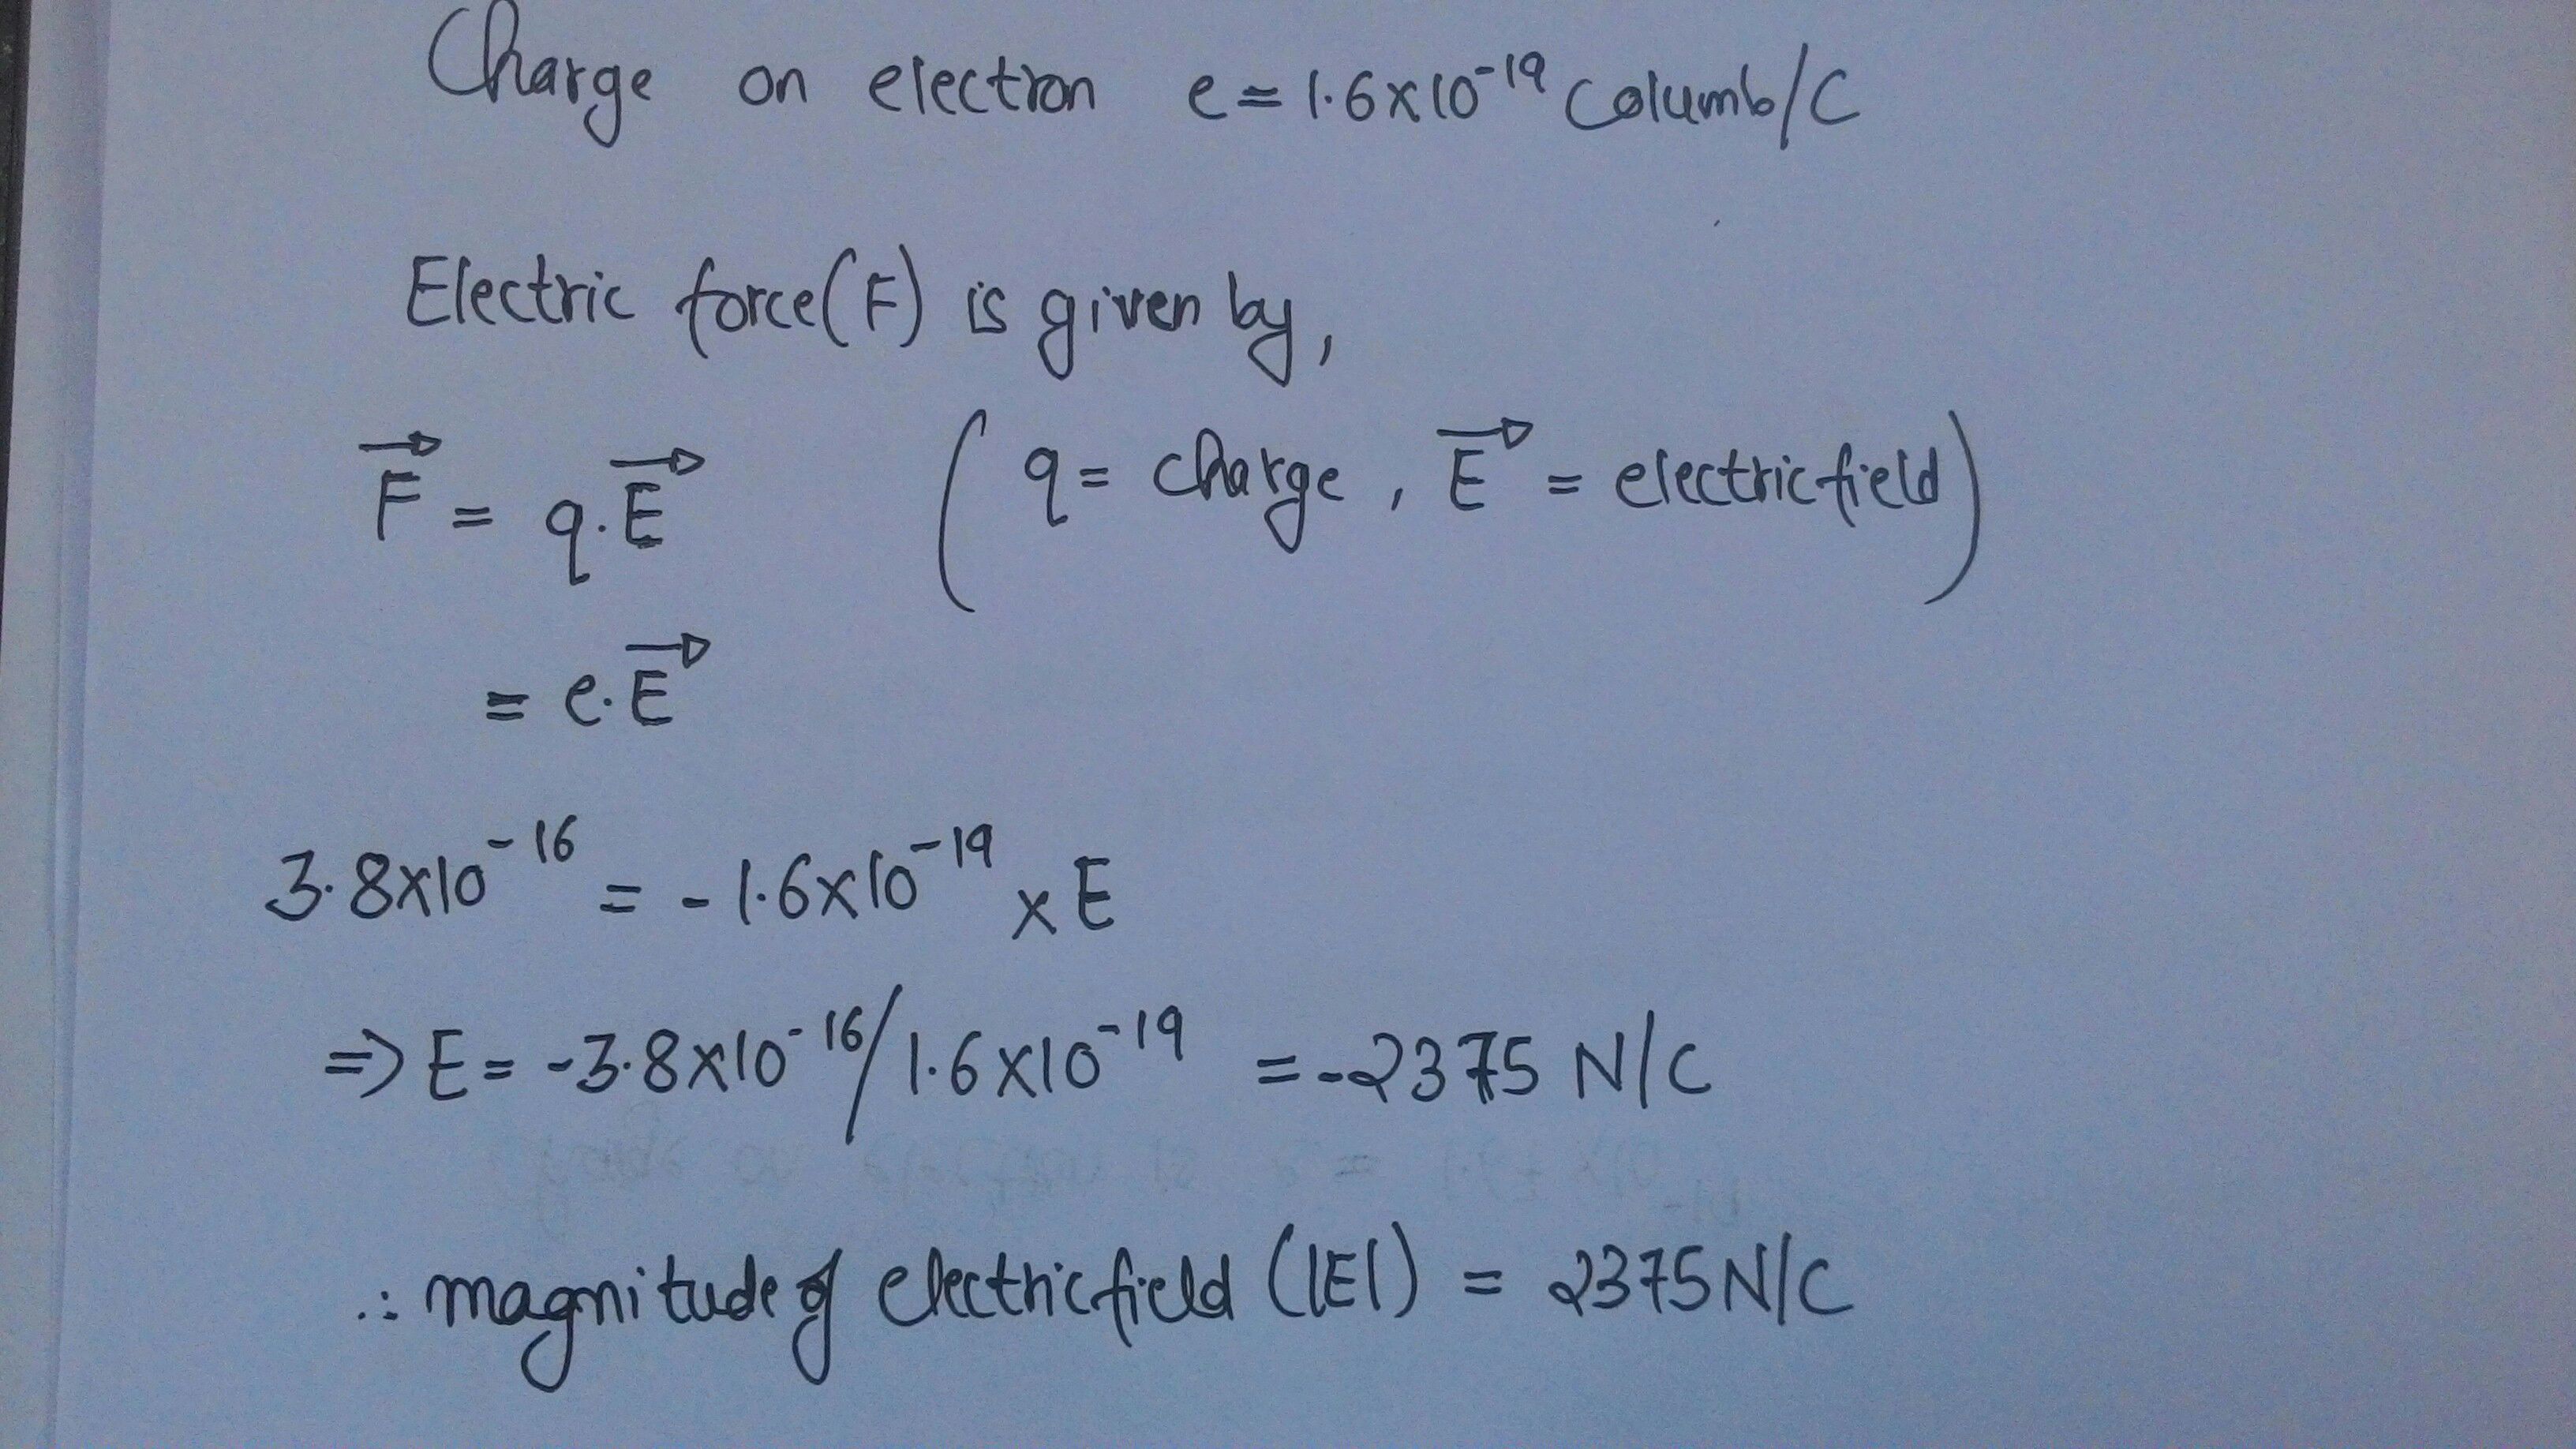 Charge on electron e = 1.6x10⁻¹⁹ Columb/C
Electric force(F) is given by,
F⃗ = q.E⃗ (q = charge, E⃗ = electric field)
= e.E⃗
3.8x10⁻¹⁶ = -1.6x10⁻¹⁹ x E
=> E = -3.8x10⁻¹⁶/1.6x10⁻¹⁹ = -2375 N/C
∴ magnitude of electric field (|E|) = 2375 N/C